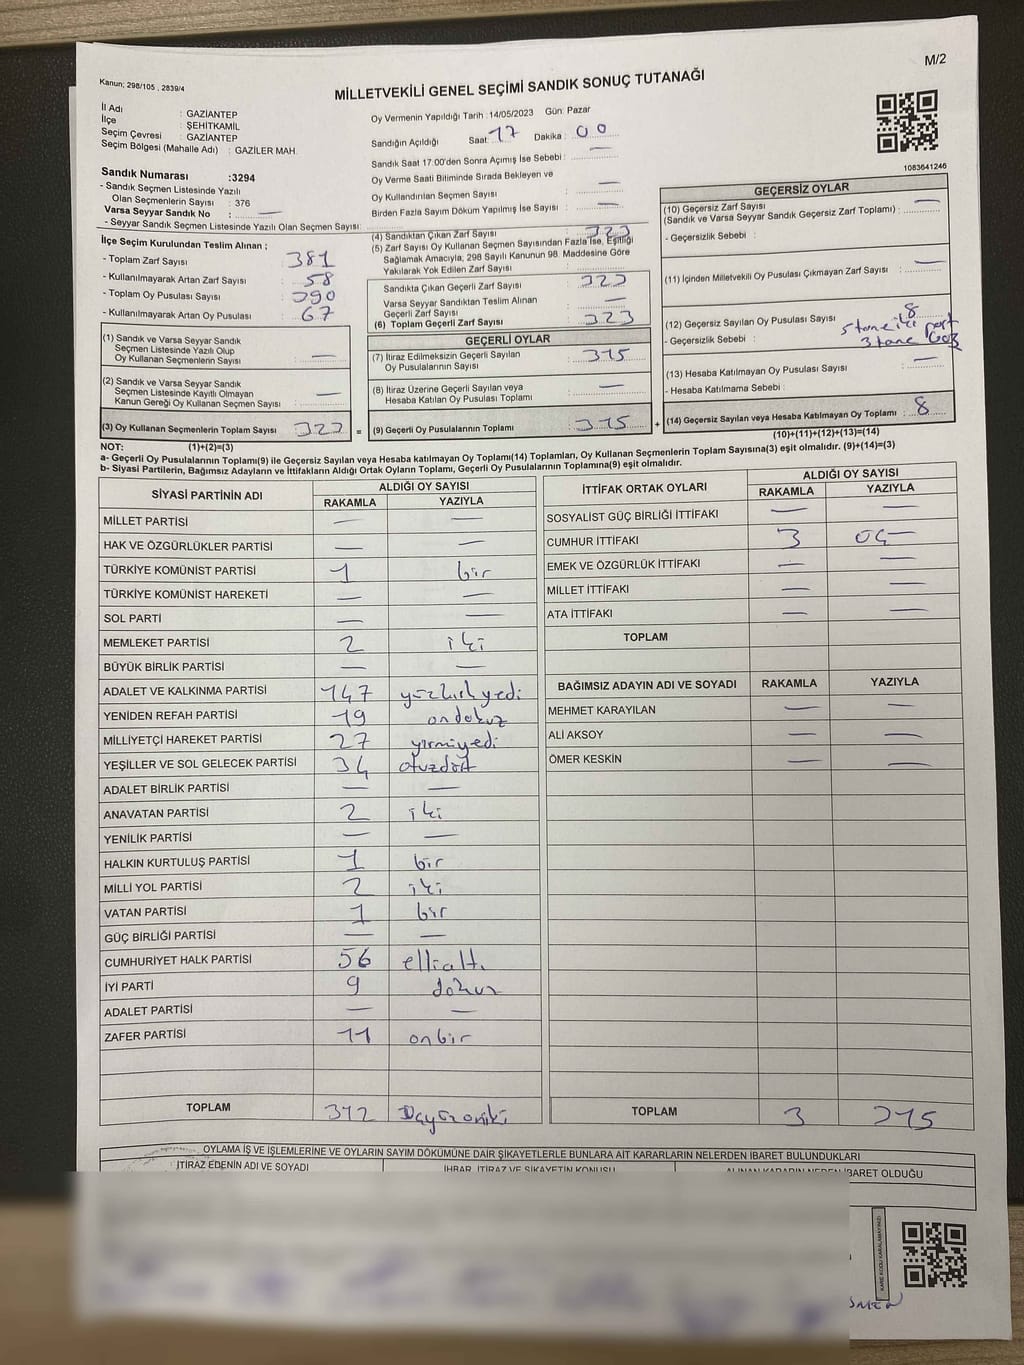 M/2
Kanun; 298/105 , 2839/4
MİLLETVEKİLİ GENEL SEÇİMİ SANDIK SONUÇ TUTANAĞI
İl Adı : GAZİANTEP
İlçe : ŞEHİTKAMİL
Seçim Çevresi : GAZİANTEP
Seçim Bölgesi (Mahalle Adı) : GAZİLER MAH.
Oy Vermenin Yapıldığı Tarih :14/05/2023 Gün: Pazar
Sandığın Açıldığı Saat: 17 Dakika : 00
Sandık Saat 17:00'den Sonra Açımış İse Sebebi : —
Oy Verme Saati Bitiminde Sırada Bekleyen ve
Oy Kullandırılan Seçmen Sayısı : —
Birden Fazla Sayım Döküm Yapılmış İse Sayısı : —
1083641246
Sandık Numarası :3294
- Sandık Seçmen Listesinde Yazılı
Olan Seçmenlerin Sayısı : 376
Varsa Seyyar Sandık No : —
- Seyyar Sandık Seçmen Listesinde Yazılı Olan Seçmen Sayısı:
İlçe Seçim Kurulundan Teslim Alınan ;
- Toplam Zarf Sayısı : 381
- Kullanılmayarak Artan Zarf Sayısı : 58
- Toplam Oy Pusulası Sayısı : 390
- Kullanılmayarak Artan Oy Pusulası : 67
(1) Sandık ve Varsa Seyyar Sandık
Seçmen Listesinde Yazılı Olup
Oy Kullanan Seçmenlerin Sayısı : —
(2) Sandık ve Varsa Seyyar Sandık
Seçmen Listesinde Kayıtlı Olmayan
Kanun Gereği Oy Kullanan Seçmen Sayısı : —
(3) Oy Kullanan Seçmenlerin Toplam Sayısı : 323
(1)+(2)=(3)
(4) Sandıktan Çıkan Zarf Sayısı : 323
(5) Zarf Sayısı Oy Kullanan Seçmen Sayısından Fazla İse, Eşitliği
Sağlamak Amacıyla, 298 Sayılı Kanunun 98. Maddesine Göre
Yakılarak Yok Edilen Zarf Sayısı :
Sandıkta Çıkan Geçerli Zarf Sayısı : 323
Varsa Seyyar Sandıktan Teslim Alınan
Geçerli Zarf Sayısı : —
(6) Toplam Geçerli Zarf Sayısı : 323
GEÇERLİ OYLAR
(7) İtiraz Edilmeksizin Geçerli Sayılan
Oy Pusulalarının Sayısı : 315
(8) İtiraz Üzerine Geçerli Sayılan veya
Hesaba Katılan Oy Pusulası Toplamı : —
= (9) Geçerli Oy Pusulalarının Toplamı : 315 +
GEÇERSİZ OYLAR
(10) Geçersiz Zarf Sayısı
(Sandık ve Varsa Seyyar Sandık Geçersiz Zarf Toplamı) : —
- Geçersizlik Sebebi :
(11) İçinden Milletvekili Oy Pusulası Çıkmayan Zarf Sayısı : —
(12) Geçersiz Sayılan Oy Pusulası Sayısı : 8
- Geçersizlik Sebebi : 5 tane iki
3 tane
(13) Hesaba Katılmayan Oy Pusulası Sayısı : —
- Hesaba Katılmama Sebebi :
(14) Geçersiz Sayılan veya Hesaba Katılmayan Oy Toplamı : 8
(10)+(11)+(12)+(13)=(14)
NOT:
a- Geçerli Oy Pusulalarının Toplamı(9) ile Geçersiz Sayılan veya Hesaba katılmayan Oy Toplamı(14) Toplamları, Oy Kullanan Seçmenlerin Toplam Sayısına(3) eşit olmalıdır. (9)+(14)=(3)
b- Siyasi Partilerin, Bağımsız Adayların ve İttifakların Aldığı Ortak Oyların Toplamı, Geçerli Oy Pusulalarının Toplamına(9) eşit olmalıdır.
SİYASİ PARTİNİN ADI ALDIĞI OY SAYISI
RAKAMLA YAZIYLA
MİLLET PARTİSİ — —
HAK VE ÖZGÜRLÜKLER PARTİSİ — —
TÜRKİYE KOMÜNİST PARTİSİ 1 bir
TÜRKİYE KOMÜNİST HAREKETİ — —
SOL PARTİ — —
MEMLEKET PARTİSİ 2 iki
BÜYÜK BİRLİK PARTİSİ — —
ADALET VE KALKINMA PARTİSİ 147 yüzkırkyedi
YENİDEN REFAH PARTİSİ 19 ondokuz
MİLLİYETÇİ HAREKET PARTİSİ 27 yirmiyedi
YEŞİLLER VE SOL GELECEK PARTİSİ 34 otuzdört
ADALET BİRLİK PARTİSİ — —
ANAVATAN PARTİSİ 2 iki
YENİLİK PARTİSİ — —
HALKIN KURTULUŞ PARTİSİ 1 bir
MİLLİ YOL PARTİSİ 2 iki
VATAN PARTİSİ 1 bir
GÜÇ BİRLİĞİ PARTİSİ — —
CUMHURİYET HALK PARTİSİ 56 ellialtı
İYİ PARTİ 9 dokuz
ADALET PARTİSİ — —
ZAFER PARTİSİ 11 onbir
TOPLAM 312 üçyüzoniki
İTTİFAK ORTAK OYLARI ALDIĞI OY SAYISI
RAKAMLA YAZIYLA
SOSYALİST GÜÇ BİRLİĞİ İTTİFAKI — —
CUMHUR İTTİFAKI 3 üç
EMEK VE ÖZGÜRLÜK İTTİFAKI — —
MİLLET İTTİFAKI — —
ATA İTTİFAKI — —
TOPLAM
BAĞIMSIZ ADAYIN ADI VE SOYADI RAKAMLA YAZIYLA
MEHMET KARAYILAN — —
ALİ AKSOY — —
ÖMER KESKİN — —
TOPLAM 3 315
OYLAMA İŞ VE İŞLEMLERİNE VE OYLARIN SAYIM DÖKÜMÜNE DAİR ŞİKAYETLERLE BUNLARA AİT KARARLARIN NELERDEN İBARET BULUNDUKLARI
İTİRAZ EDENİN ADI VE SOYADI İHBAR, İTİRAZ VE ŞİKAYETİN KONUSU ALINAN KARARIN NEDEN İBARET OLDUĞU
KARE KODU KARALAMAYINIZ!